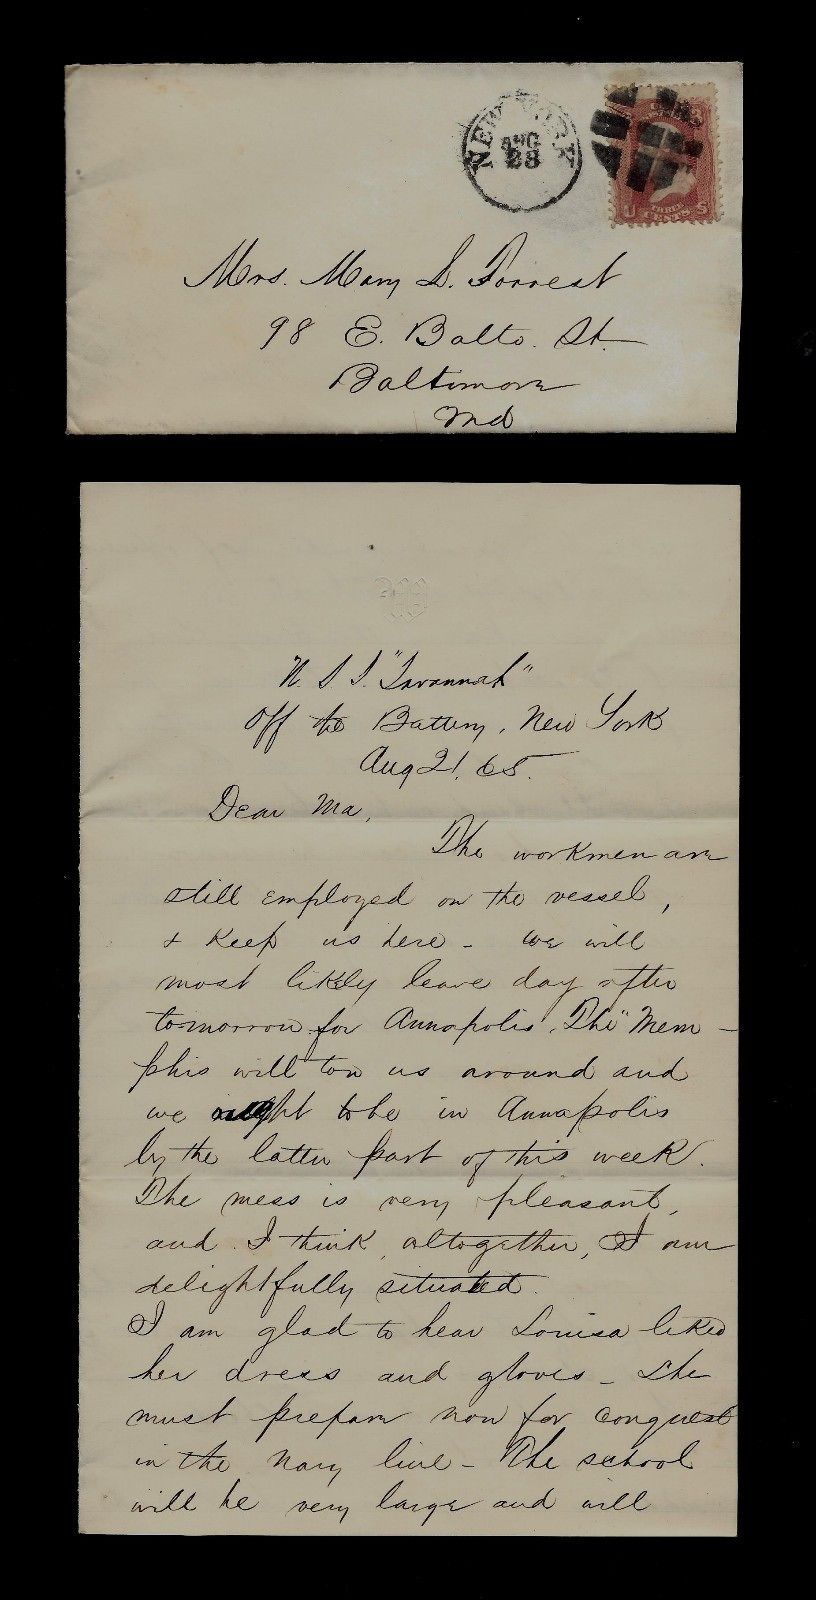 NEW YORK
AUG
28
U THREE CENTS S
Mrs. Mary L. Forrest
98 E. Balto. St.
Baltimore
Md
U. S. S. "Savannah"
Off the Battery, New York
Aug 21, 65.
Dear Ma,
The workmen are
still employed on the vessel,
& keep us here - we will
most likely leave day after
tomorrow for Annapolis. The "Mem-
phis will tow us around and
we ought to be in Annapolis
by the latter part of this week.
The mess is very pleasant,
and I think, altogether, I am
delightfully situated.
I am glad to hear Louisa liked
her dress and gloves - She
must prepare now for conquest
in the navy line - The school
will be very large and will